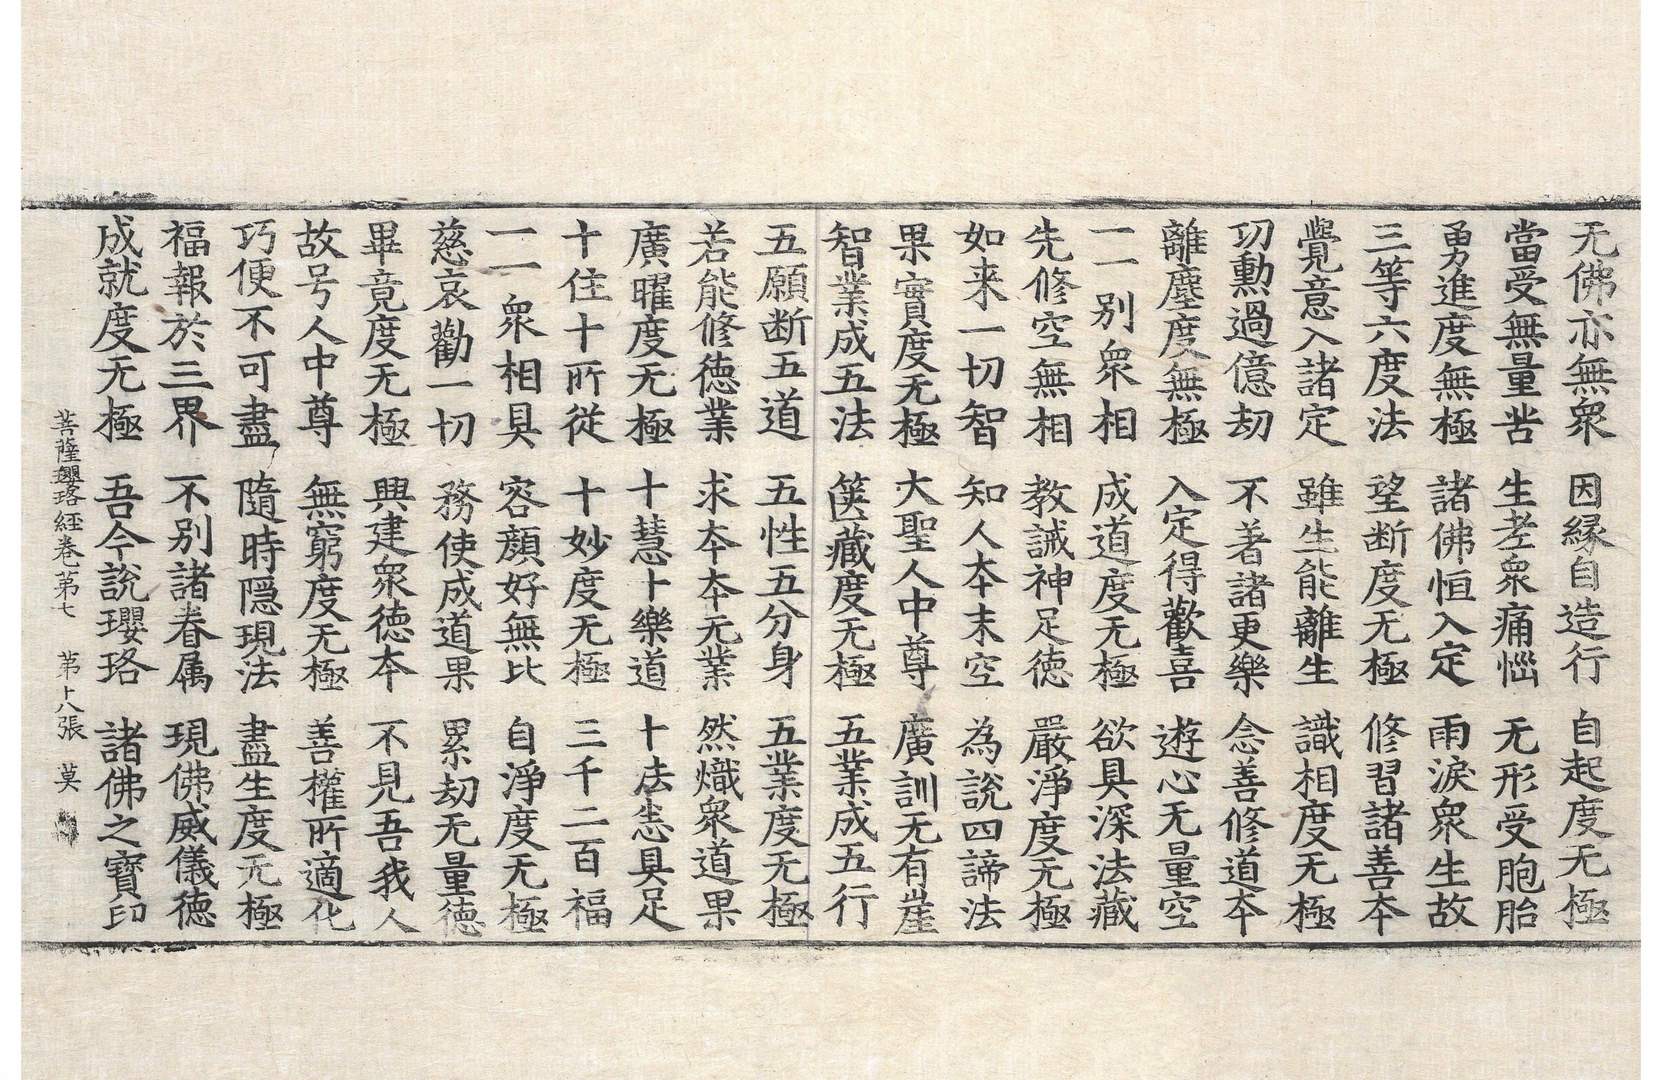 无佛亦無衆 因緣自造行 自起度无極
當受無量苦 生老衆痛惱 无形受胞胎
勇進度無極 諸佛恒入定 雨淚衆生故
三等六度法 望断度无極 修習諸善夲
覺意入諸定 雖生能離生 識相度无極
功勳過億劫 不著諸更樂 念善修道夲
離塵度無極 入定得歡喜 遊心无量空
一一別衆相 成道度无極 欲具深法藏
先修空無相 教誡神足德 嚴淨度无極
如来一切智 知人夲末空 為說四諦法
果實度无極 大聖人中尊 廣訓无有崖
智業成五法 篋藏度无極 五業成五行
五願断五道 五性五分身 五業度无極
若能修德業 求夲夲无業 然熾衆道果
廣曜度无極 十慧十樂道 十法恙具足
十住十所從 十妙度无極 三千二百福
一一衆相具 容顔好無比 自淨度无極
慈哀勸一切 務使成道果 累劫无量德
畢竟度无極 興建衆德夲 不見吾我人
故号人中尊 無窮度无極 善權所適化
巧便不可盡 隨時隱現法 盡生度无極
福報於三界 不別諸眷属 現佛威儀德
成就度无極 吾今說瓔珞 諸佛之寶印
菩薩瓔珞經卷第七 第十八張 莫